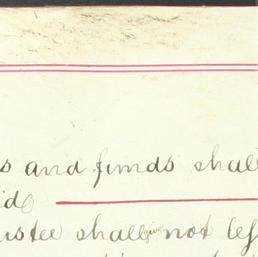 s and funds shall
id
ustee shall give not les